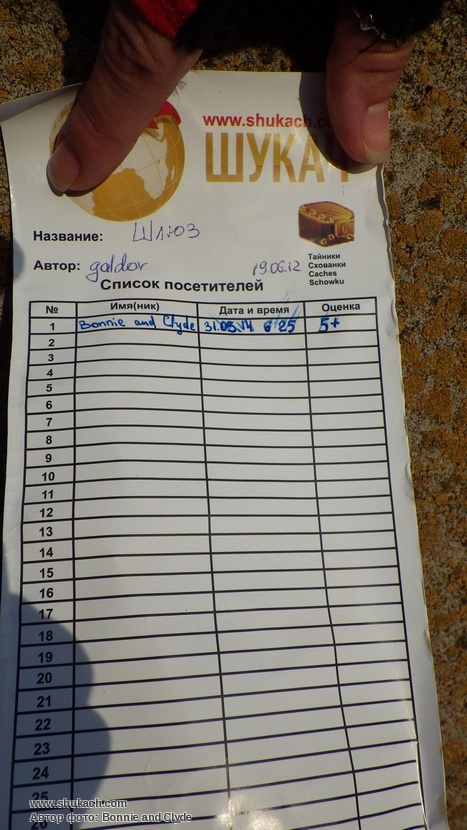 www.shukach.co
ШУКАЧ
Название: Шлюз
Автор: galdor 19.06.12
Тайники
Схованки
Caches
Schowku
Список посетителей
№ Имя(ник) Дата и время Оценка
1 Bonnie and Clyde 31.05.14 6 25 5+
2
3
4
5
6
7
8
9
10
11
12
13
14
15
16
17
18
19
20
21
22
23
24
25
26
www.shukach.com
Автор фото: Bonnie and Clyde